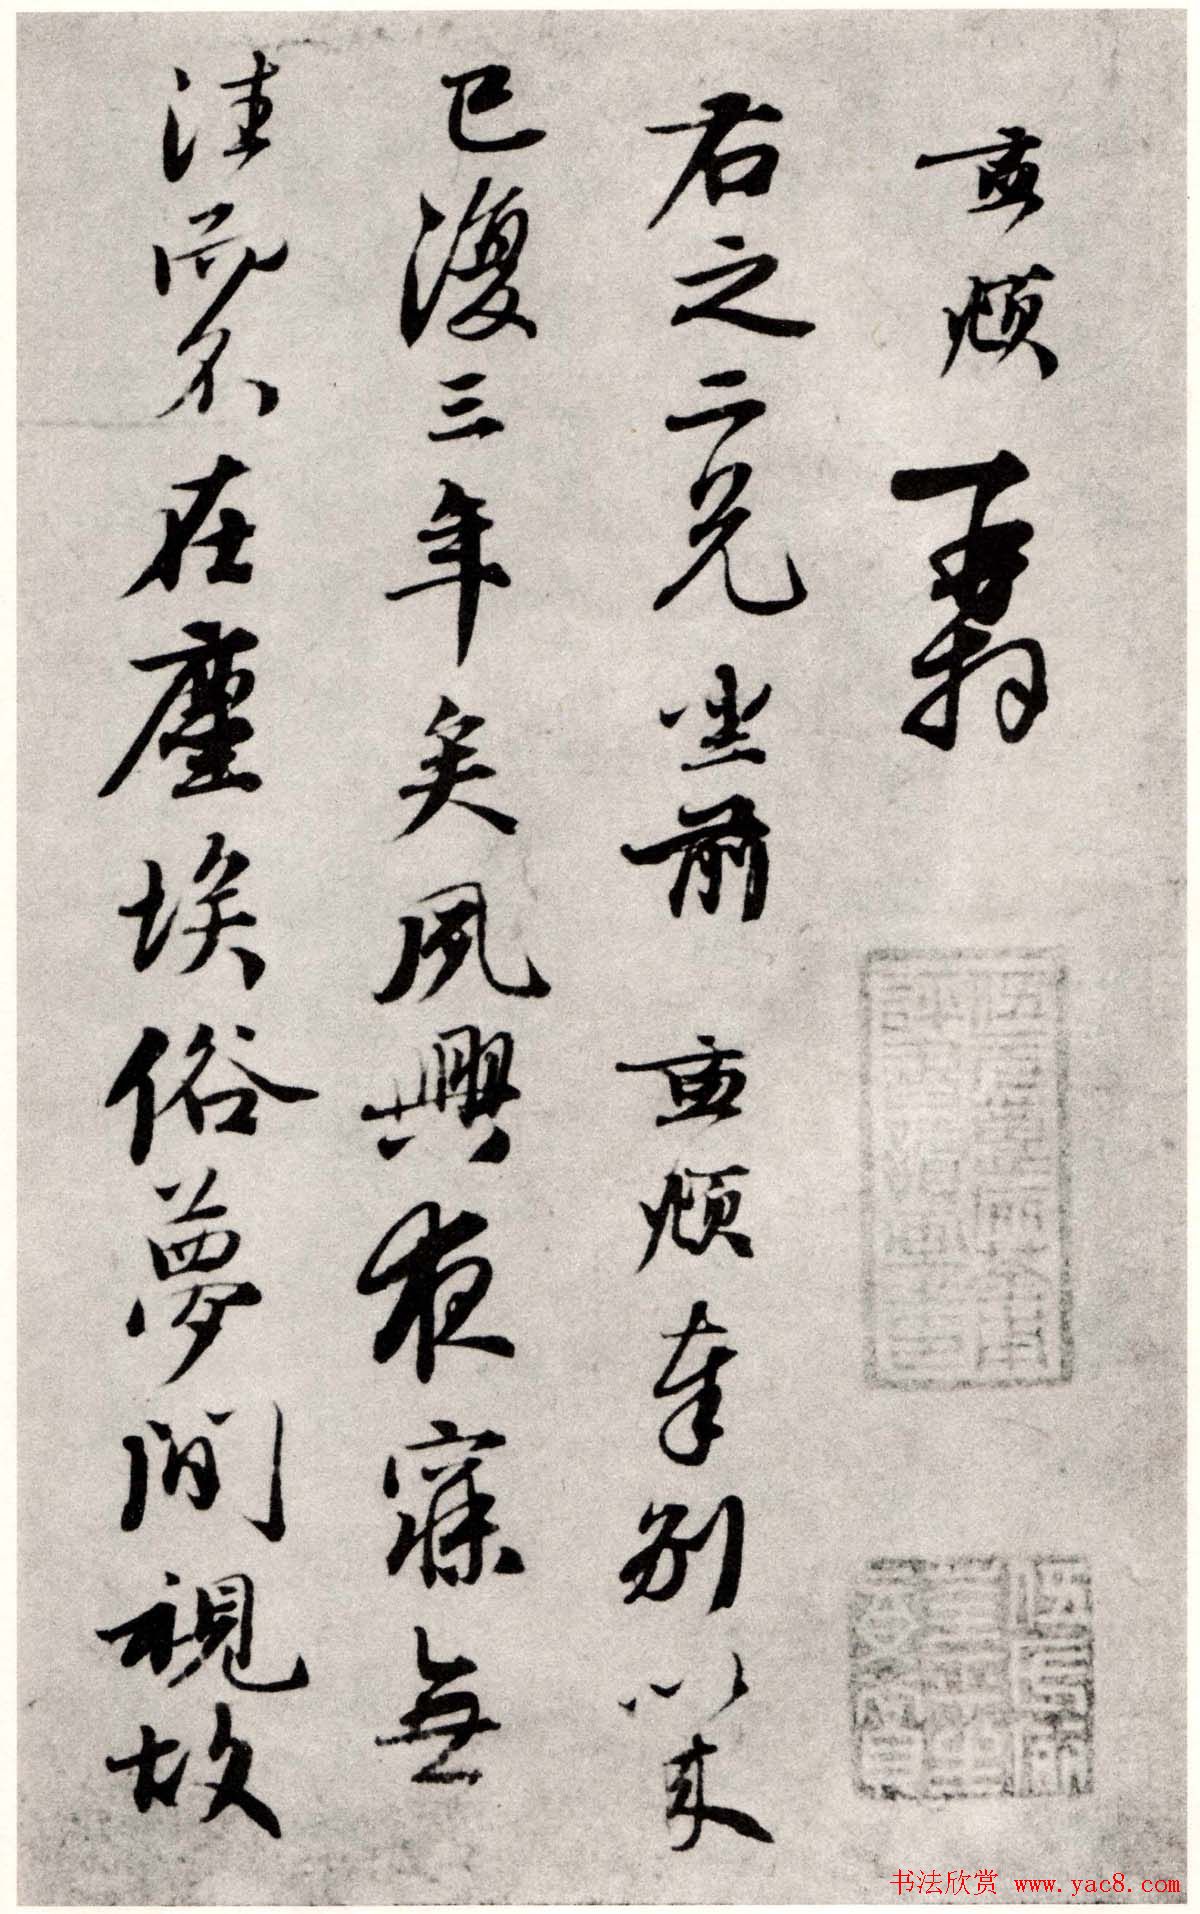 孟頫再拜
右之二兄坐前 孟頫奉別以來
已復三年矣夙興夜寐無
往而不在塵埃俗夢間視故
书法欣赏 www.yac8.com